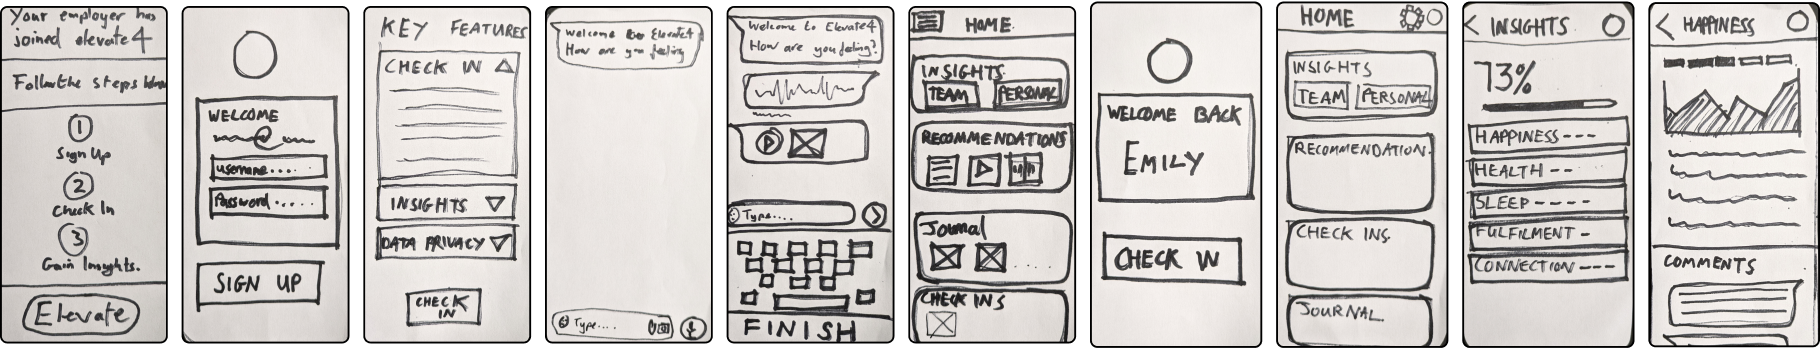 Your employer has
joined elevate4
Follow the steps
1
Sign Up
2
Check In
3
Gain Insights.
Elevate
WELCOME
username....
Password.....
SIGN UP
KEY FEATURES
CHECK IN
INSIGHTS
DATA PRIVACY
CHECK
IN
Welcome Elevate4
How are you feeling
Type....
Welcome to Elevate4
How are you feeling?
Type....
FINISH
HOME
INSIGHTS
TEAM PERSONAL
RECOMMENDATIONS
Journal
CHECK INS
WELCOME BACK
EMILY
CHECK IN
HOME
INSIGHTS
TEAM PERSONAL
RECOMMENDATION.
CHECK INS
JOURNAL
< INSIGHTS
73%
HAPPINESS ---
HEALTH --
SLEEP ----
FULFILMENT -
CONNECTION ---
< HAPPINESS
COMMENTS